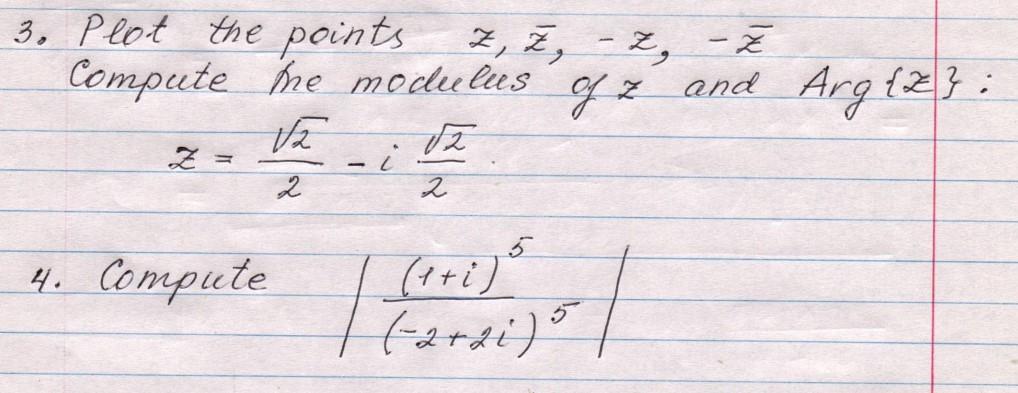 3. Plot the points z, z̄, -z, -z̄
Compute the modulus of z and Arg{z}:
z = √2/2 - i √2/2.
4. Compute |(1+i)^5/(-2+2i)^5|